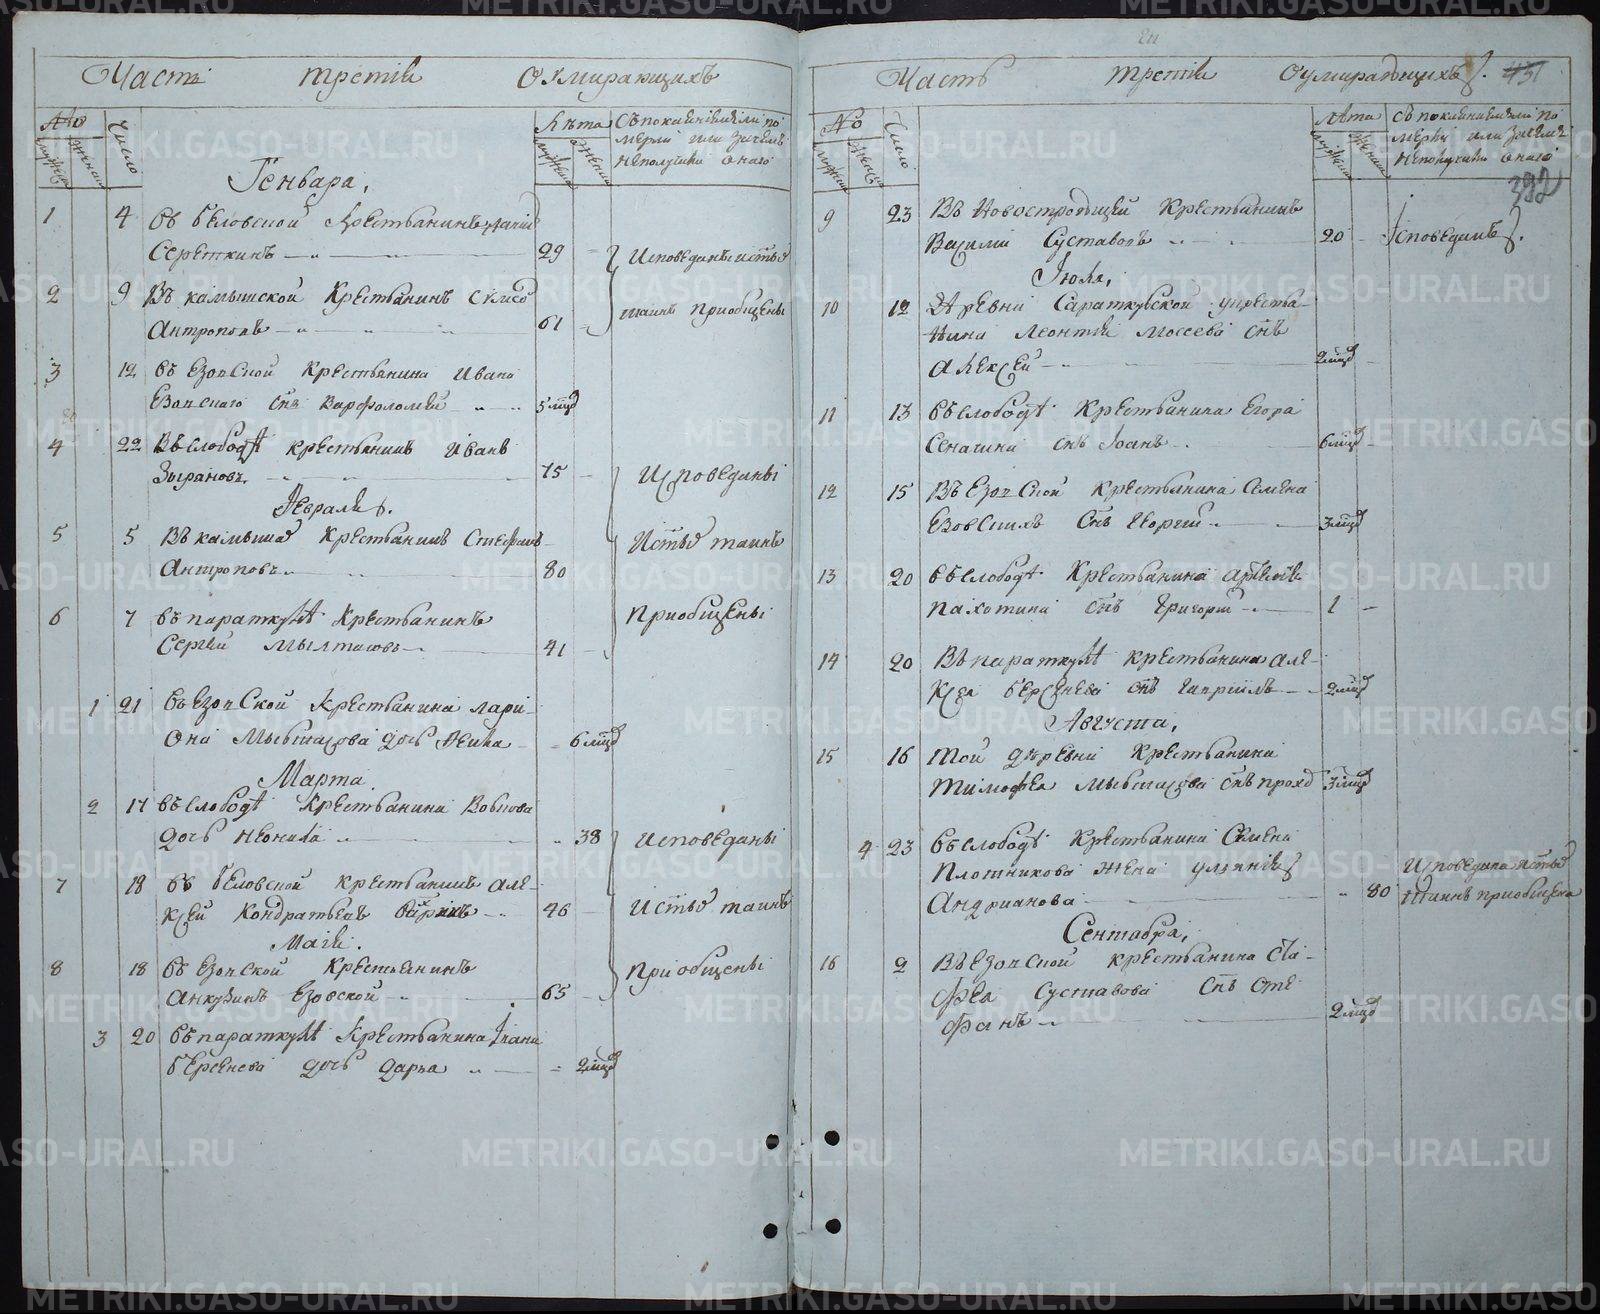 Часть третія О умирающихъ
No Число Лѣта Съ покаяніемъ ли по
мерли или зачемъ
неполучили онаго
Генваря,
1 4 въ Беловской Крестьянинъ
Сереткинъ 29 Исповеданы истыхъ
2 9 въ камышской Крестьянинъ
Антроповъ 61 таинъ приобщены
3 12 въ Езовской Крестьянина Ивана
Езовскаго снъ Варфоломей 5 мцъ
4 22 въ слободѣ крестьянинъ Иванъ
Зыряновъ 75 Исповеданы
Февраля.
5 5 въ камышкѣ Крестьянинъ Стефанъ
Антроповъ 80 Истыхъ таинъ
6 7 въ параткулѣ Крестьянинъ приобщены
Сергей Мылтасовъ 41
1 21 въ Езовской Крестьянина Лари-
она Мылтасова дочь 6 мцъ
Марта
2 17 въ слободѣ Крестьянина
дочь Неонила 38 исповеданы
7 18 въ Беловской крестьянинъ Але-
ксей Кондратьевъ 46 Истыхъ таинъ
Маія.
8 18 въ Езовской Крестьянинъ приобщены
Езовской 65
3 20 въ параткулѣ Крестьянина Ивана
Берсенева дочь Дарья 2 мцъ
Часть третія О умирающихъ 431
No Число Лѣта Съ покаяніемъ ли по
мерли или зачемъ
неполучили онаго
392
9 23 Въ Новостроющей Крестьянинъ
Василій Суставовъ 20 Исповеданъ
Іюля,
10 12 Деревни Параткульской крестья-
нина Леонтія Мосеева снъ
Алексей 2 мцъ
11 13 въ слободѣ Крестьянина Егора
Сенагина снъ Іоанъ 6 мцъ
12 15 Въ Езовской крестьянина Семена
Езовскихъ снъ Георгий 3 мцъ
13 20 въ слободѣ Крестьянина
Пахотина снъ Григорій 1
14 20 Въ параткулѣ крестьянина Але-
ксея Берсенева снъ Гавріилъ 2 мцъ
Августа,
15 16 той деревни Крестьянина
Тимофея Мылтасова снъ Прохоръ 3 мцъ
4 23 въ слободѣ Крестьянина Семена
Плотникова жена Ульянія Исповедана истыхъ
Андрианова 80 таинъ приобщена
Сентября,
16 2 Въ Езовской крестьянина
Суставова снъ Сте
фанъ 2 мцъ
METRIKI.GASO-URAL.RU